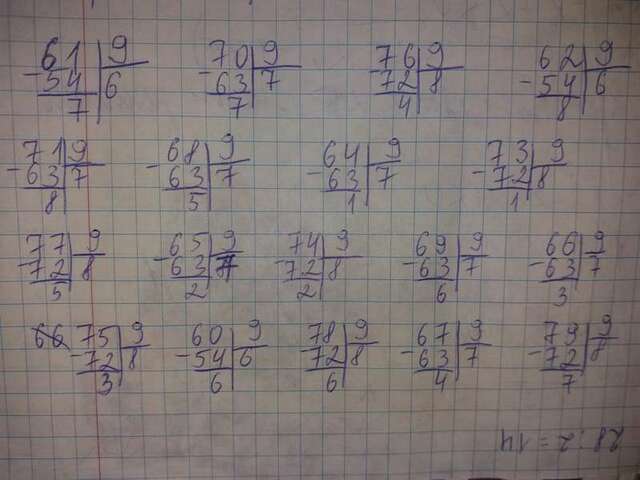 61 9 70 9 76 9 62 9
-54 6 -63 7 -72 8 -54 6
7 7 4 8
71 9 68 9 64 9 73 9
-63 7 -63 7 -63 7 -72 8
8 5 1 1
77 9 65 9 74 9 69 9 66 9
-72 8 -63 7 -72 8 -63 7 -63 7
5 2 2 6 3
66 75 9 60 9 78 9 67 9 79 9
-72 8 -54 6 -72 8 -63 7 -72 8
3 6 6 4 7
28:2=14